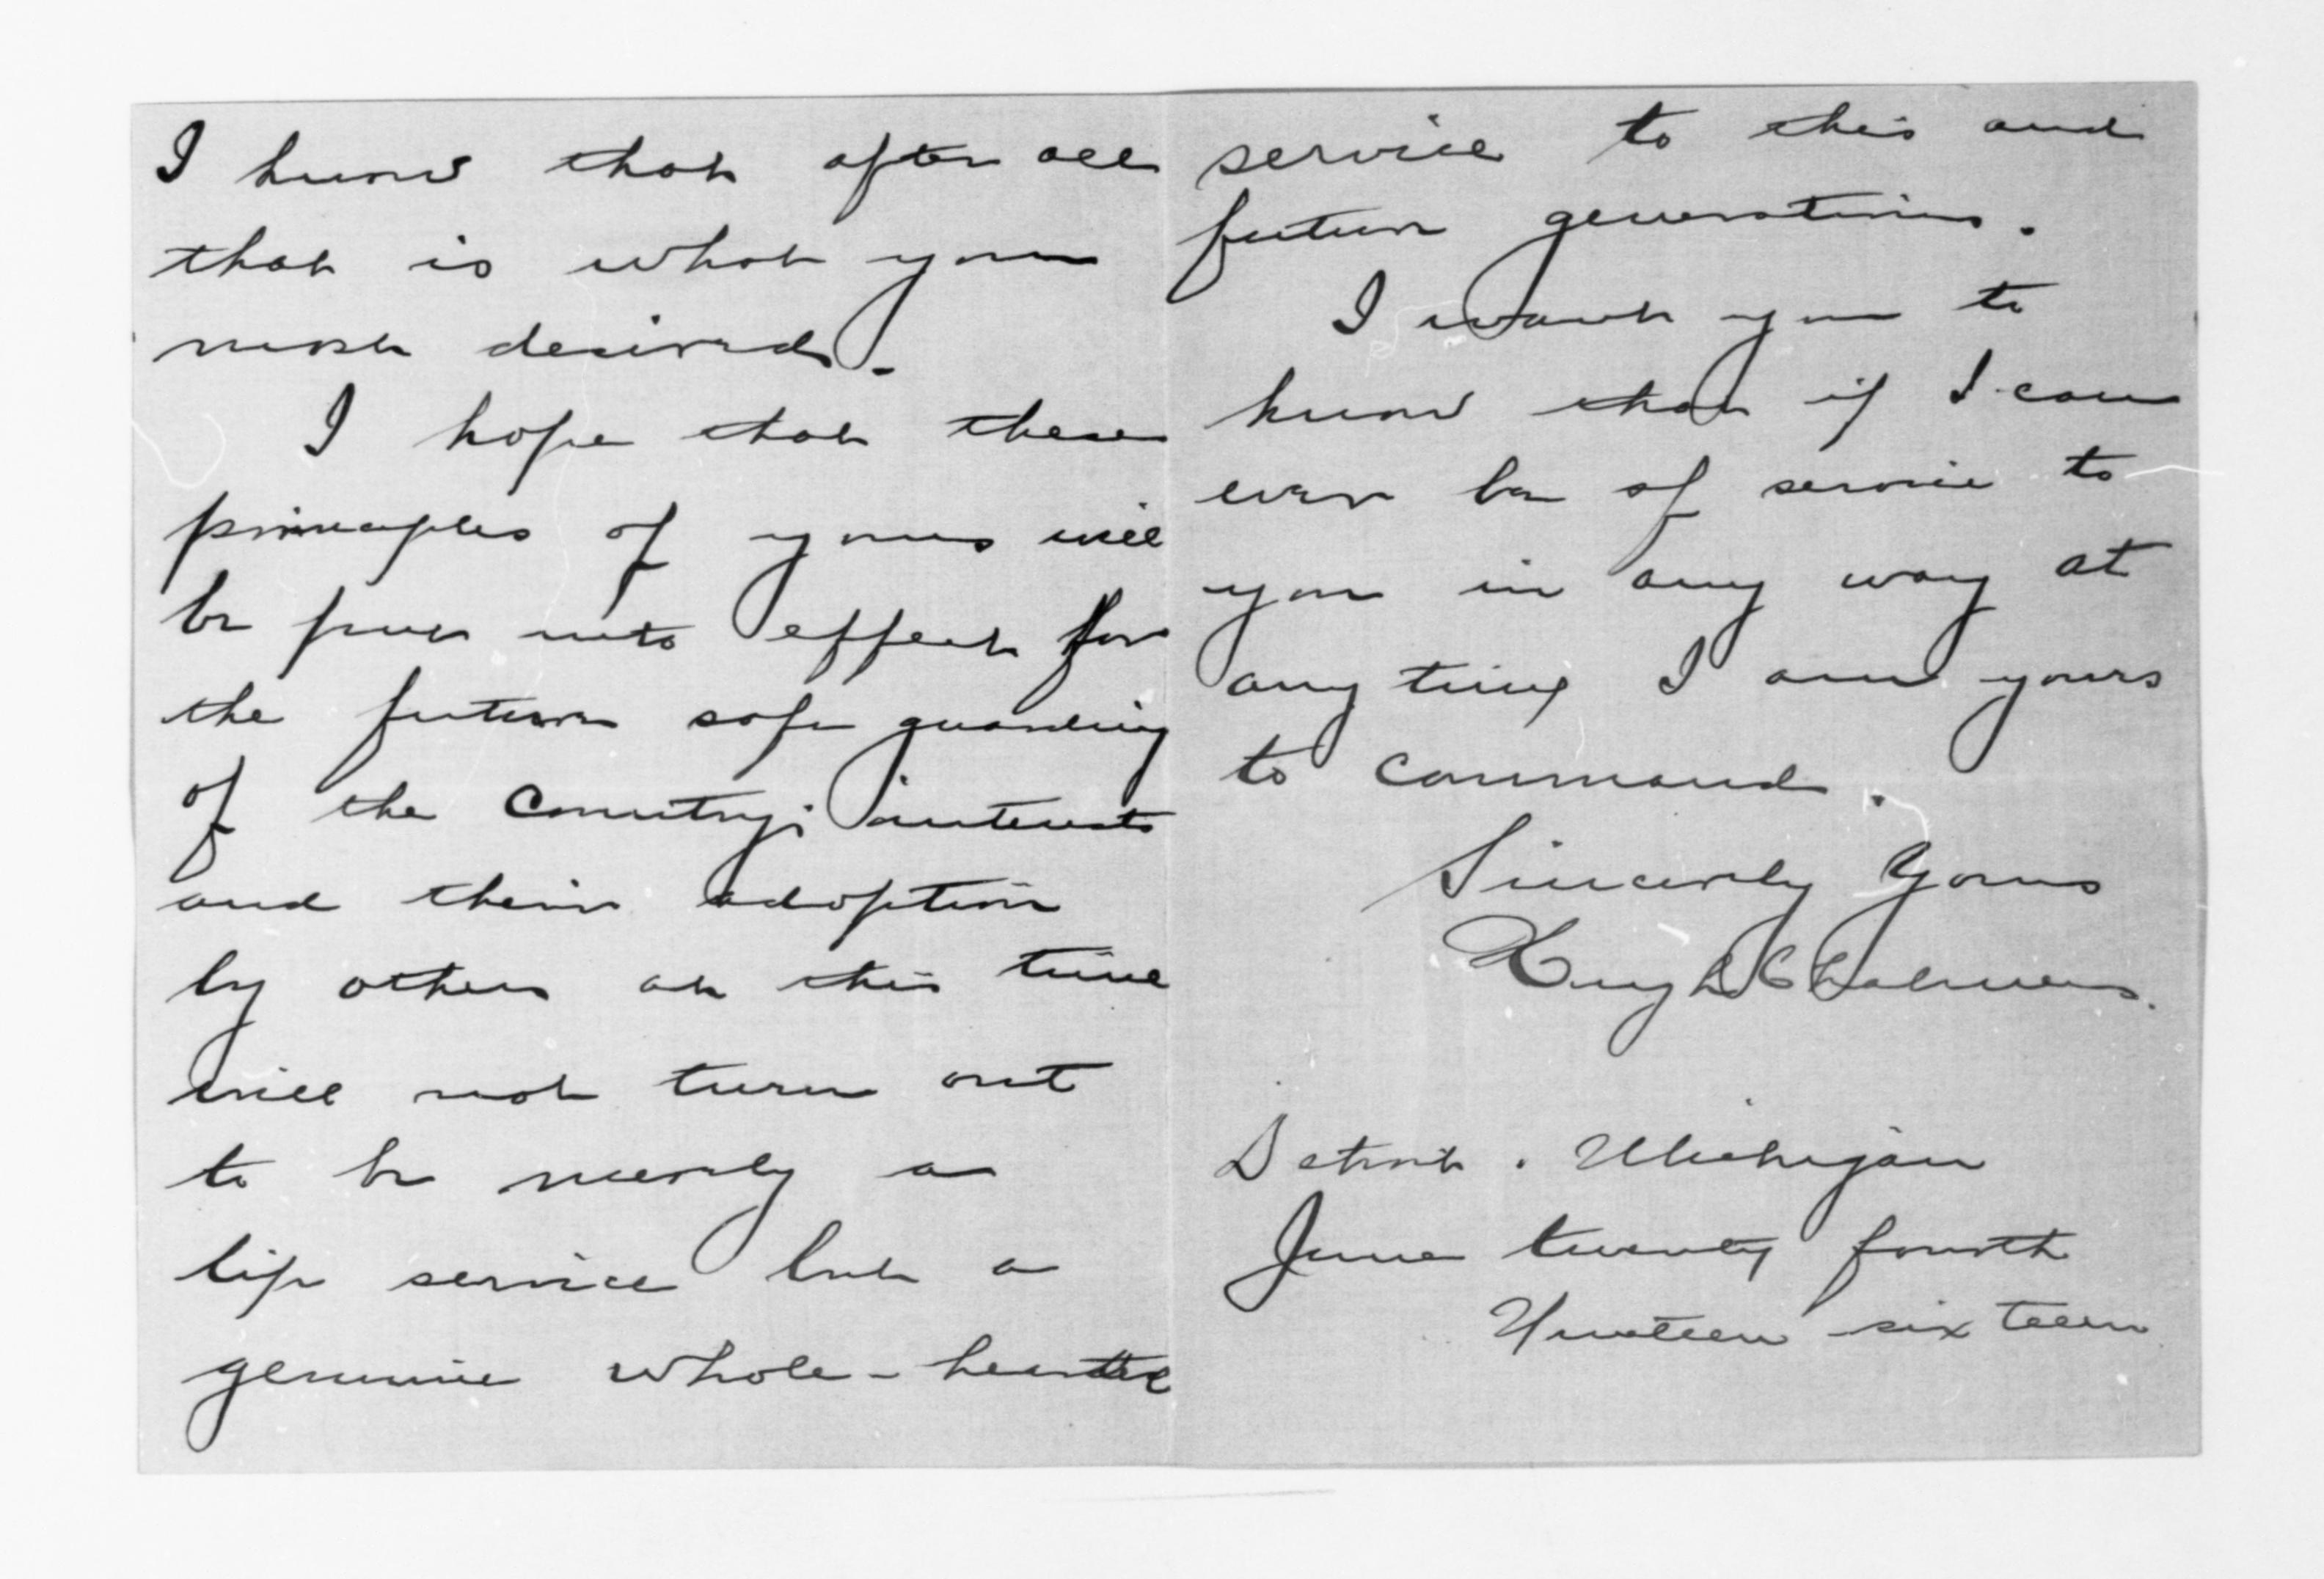 I know that after all
that is what you
most desired.
I hope that these
principles of yours will
be put into effect for
the future safe guarding
of the Country's interests
and their adoption
by others at this time
will not turn out
to be merely a
lip service but a
genuine whole-hearted
service to this and
future generations.
I want you to
know that if I can
ever be of service to
you in any way at
any time I am yours
to command.
Sincerely Yours
Hugh Chalmers.
Detroit. Michigan
June twenty fourth
Nineteen sixteen